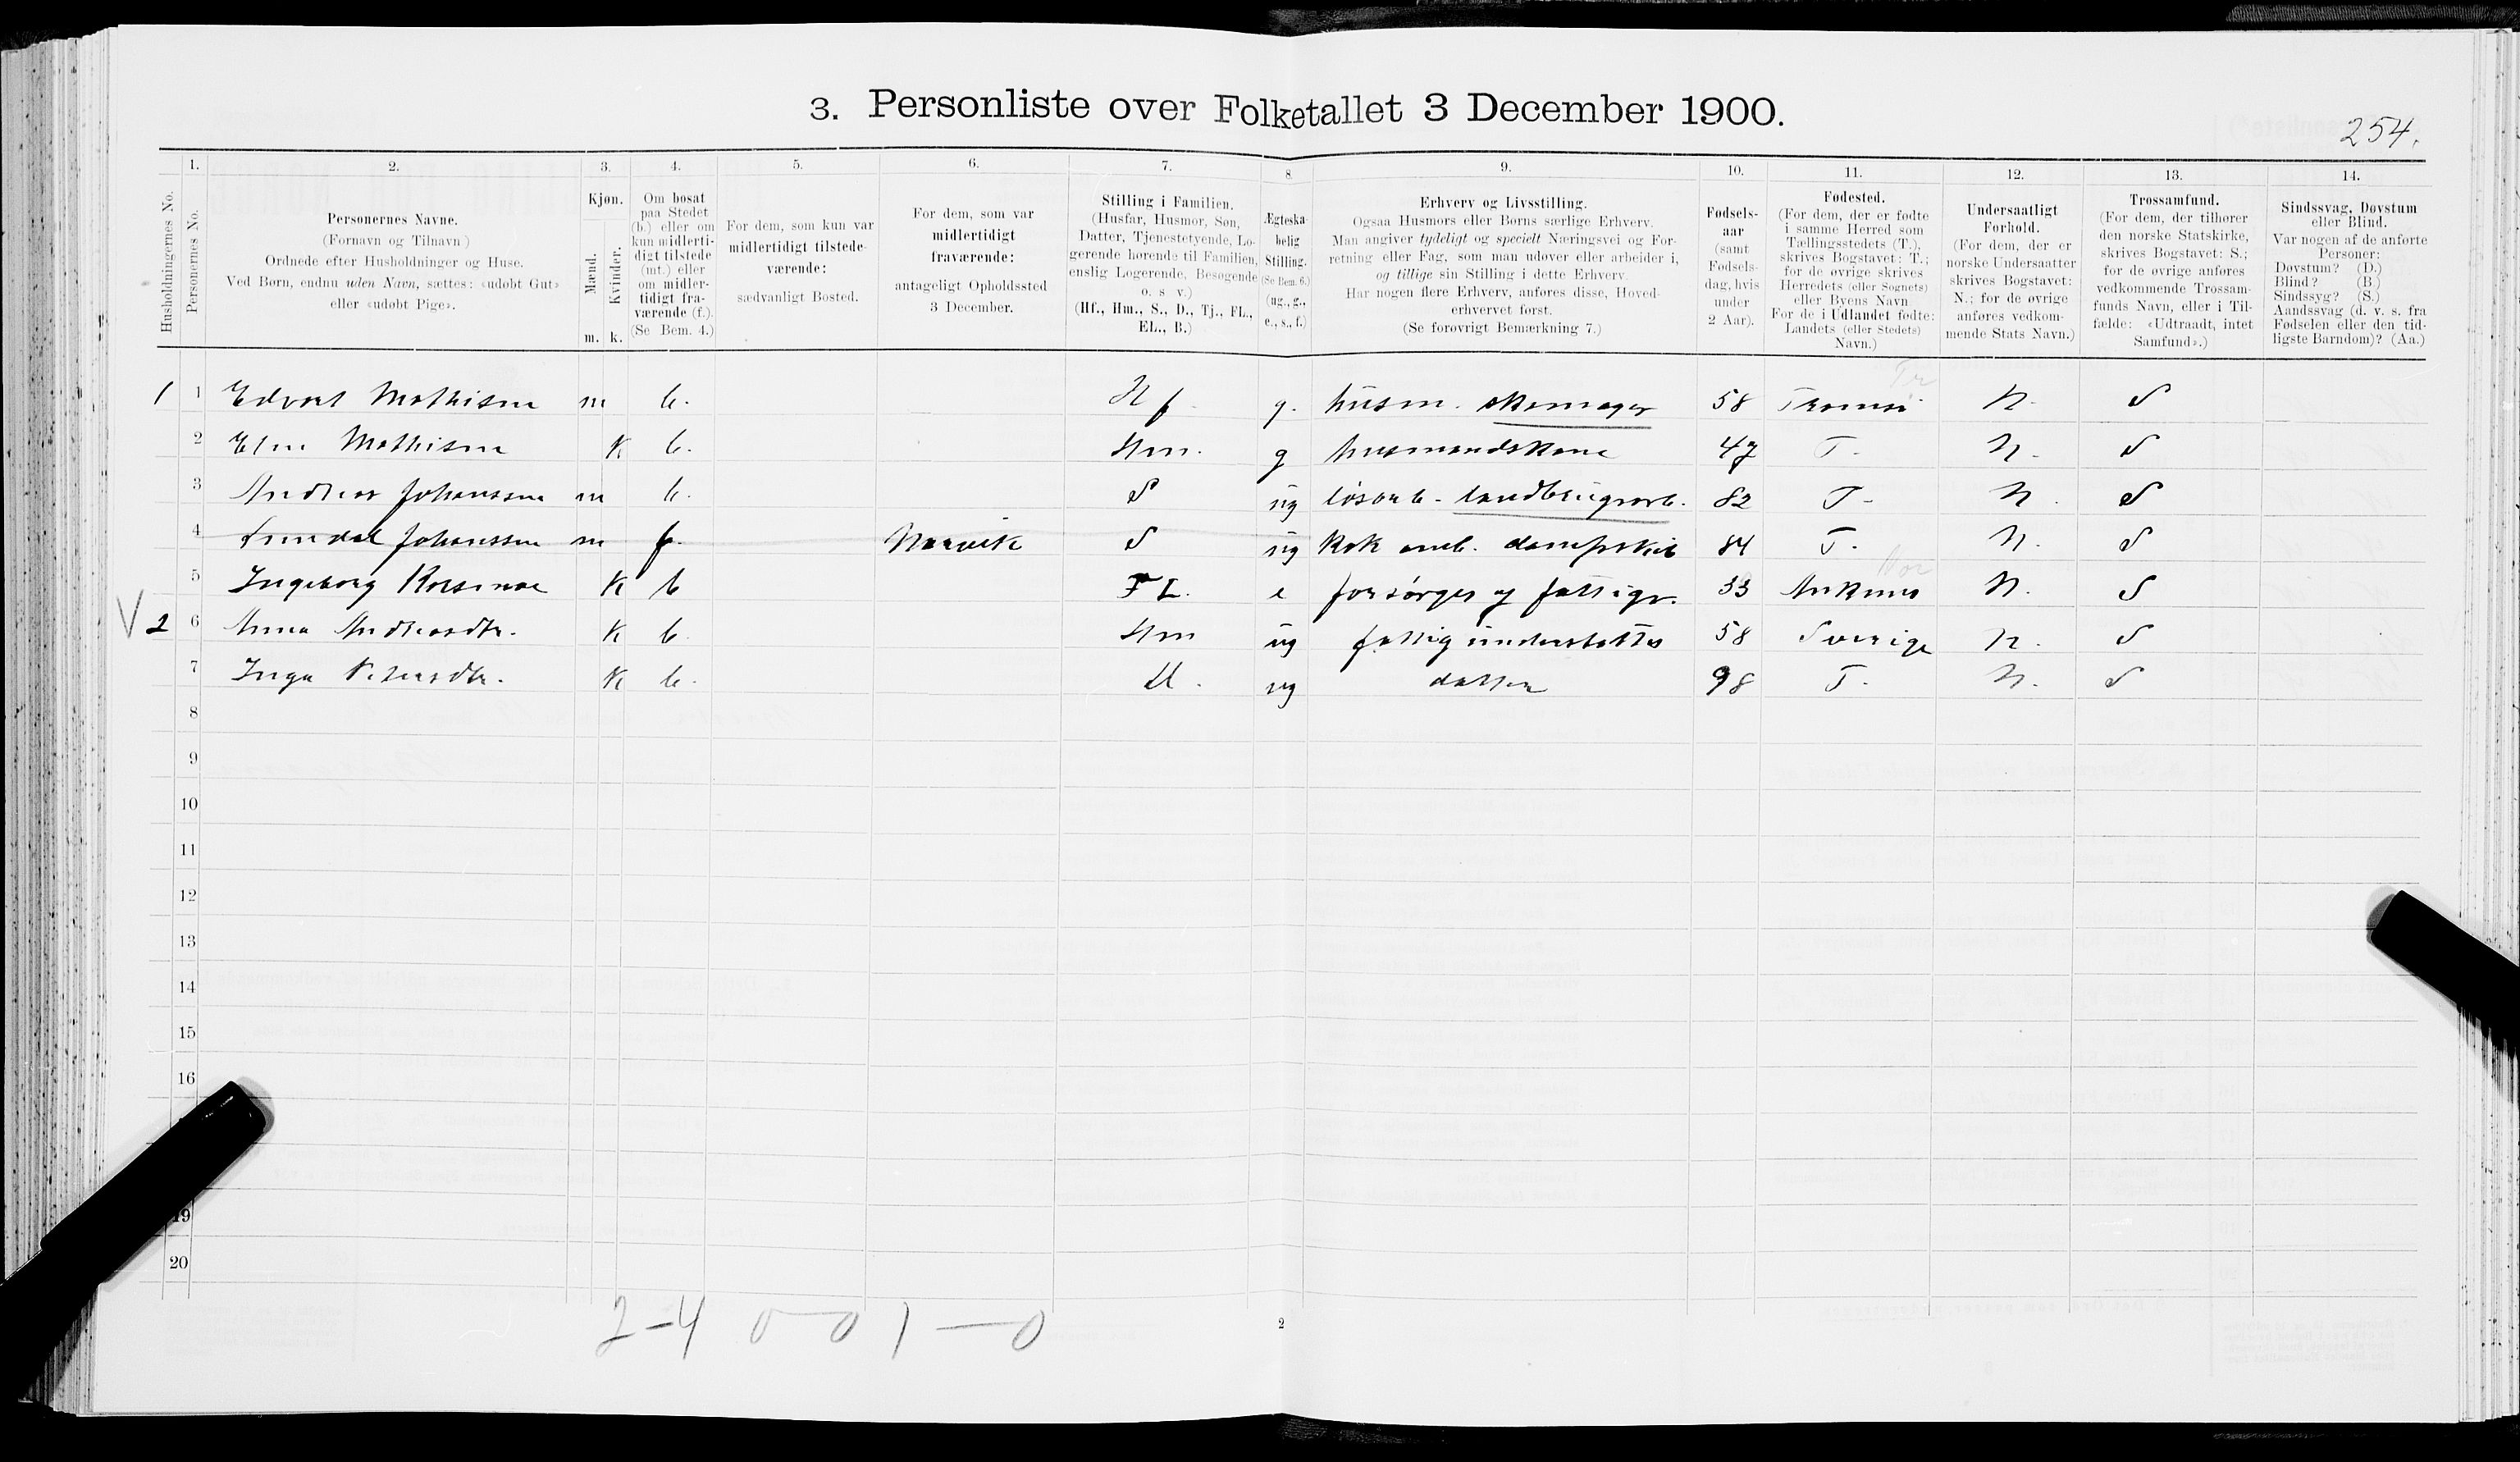 3. Personliste over Folketallet 3 December 1900.
254.
1. 2. 3. 4. 5. 6. 7. 8 9. 10. 11. 12. 13. 14.
Husholdningernes No.
Personernes No.
Personernes Navne.
(Fornavn og Tilnavn)
Ordnede efter Husholdninger og Huse.
Ved Børn, endnu uden Navn, sættes: «udøbt Gut»
eller «udøbt Pige».
Kjøn.
Mænd.
Kvinder.
m. k.
Om bosat
paa Stedet
(b.) eller om
kun midlerti-
digt tilstede
(mt.) eller
om midler-
tidigt fra-
værende (f.).
(Se Bem. 4.)
For dem, som kun var
midlertidigt tilstede-
værende:
sædvanligt Bosted.
For dem, som var
midlertidigt
fraværende:
antageligt Opholdssted
3 December.
Stilling i Familien.
(Husfar, Husmor, Søn,
Datter, Tjenestetyende, Lo-
gerende hørende til Familien,
enslig Logerende, Besøgende
o. s v.)
(Hf., Hm., S., D., Tj., FL.,
EL., B.)
Ægteska-
belig
Stilling.
(Se Bem. 6.)
(ug., g.,
e., s., f.)
Erhverv og Livsstilling.
Ogsaa Husmors eller Børns særlige Erhverv.
Man angiver tydeligt og specielt Næringsvei og For-
retning eller Fag, som man udøver eller arbeider i,
og tillige sin Stilling i dette Erhverv.
Har nogen flere Erhverv, anføres disse, Hoved-
erhvervet først.
(Se forøvrigt Bemærkning 7.)
Fødsels-
aar
(samt
Fødsels-
dag, hvis
under
2 Aar).
Fødested.
(For dem, der er fødte
i samme Herred som
Tællingsstedets (T.),
skrives Bogstavet: T.;
for de øvrige skrives
Herredets (eller Sognets)
eller Byens Navn
For de i Udlandet fødte:
Landets (eller Stedets)
Navn.)
Undersaatligt
Forhold.
(For dem, der er
norske Undersaatter
skrives Bogstavet:
N.; for de øvrige
anføres vedkom-
mende Stats Navn.)
Trossamfund.
(For dem, der tilhører
den norske Statskirke,
skrives Bogstavet: S.;
for de øvrige anføres
vedkommende Trossam-
funds Navn, eller i Til-
fælde: «Udtraadt, intet
Samfund».)
Sindssvag, Døvstum
eller Blind.
Var nogen af de anførte
Personer:
Døvstum? (D.)
Blind? (B.)
Sindssyg? (S.)
Aandssvag (d. v. s. fra
Fødselen eller den tid-
ligste Barndom)? (Aa.)
Tr
1 1 Edvart Mathisen m b. Hf. g. husm. skomager 58 Tromsø N. S
2 Elen Mathisen K b. Hm. g husmandskone 47 T. N. S
3 Andreas Johanssen m b. S ug løsarb. landbrugsarb. 82 T. N. S
4 Johanssen m f. Narvik S ug Kok omb. dampskib 84 T. N. S
5 Ingeborg K b FL. e forsørges af fattigv. 33 N. S
V 2 6 Anna Andreasdtr. K b. Hm ug fattig understøttes 58 Sverige N. S
7 Inga Petersdtr. K b. D. ug datter 98 T. N. S
8
9
10
11
12
13
14
15
16
19
20
2-4 0-0 1-0
2